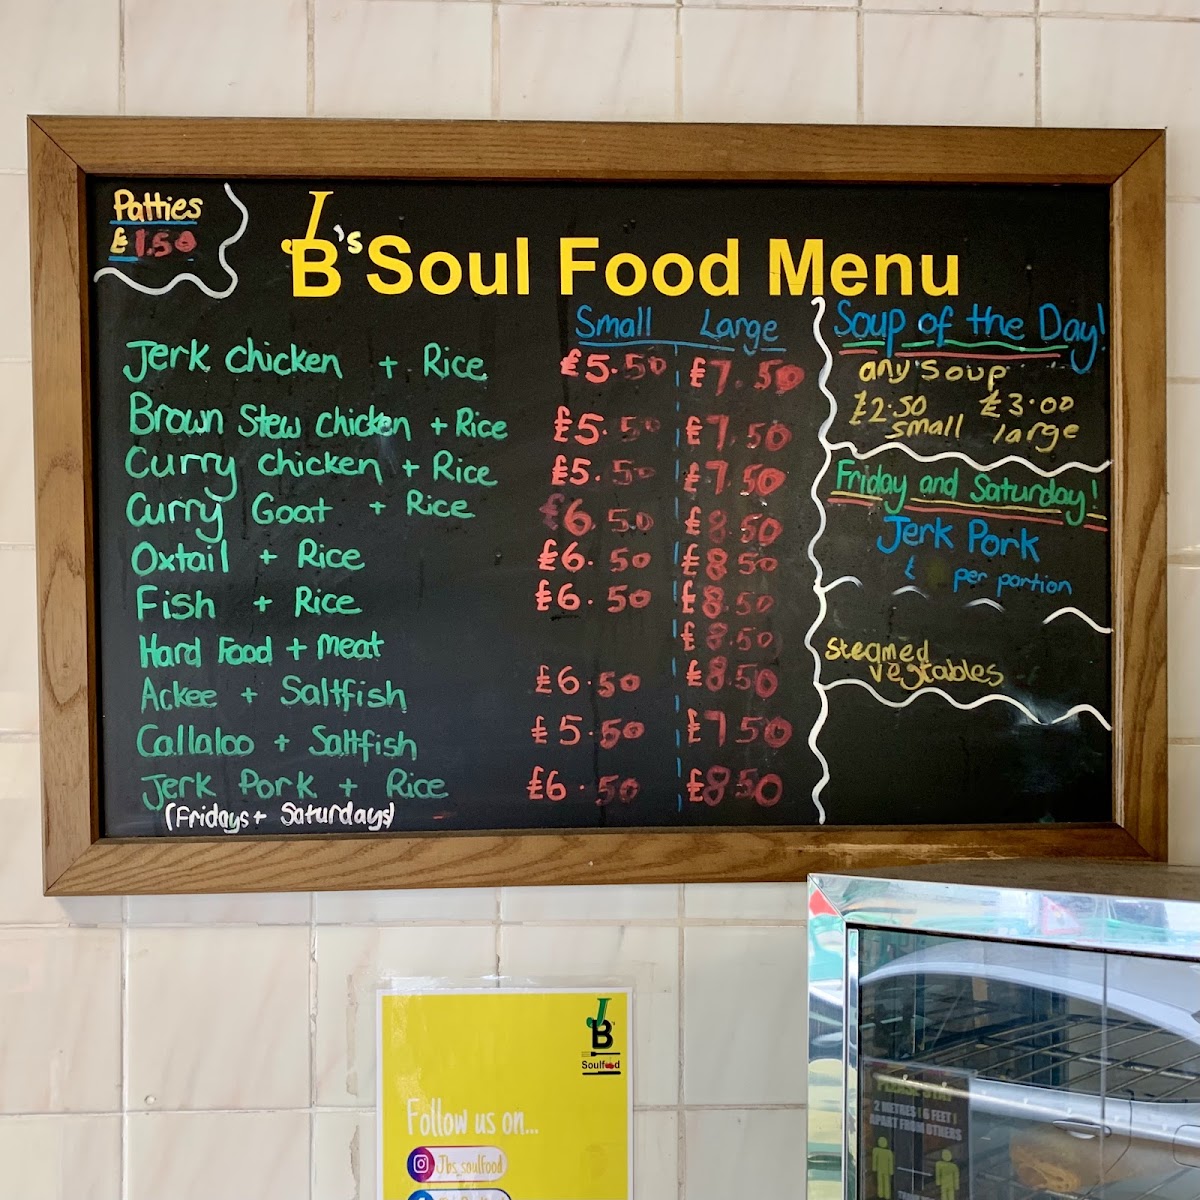 Patties
£1.50
JB's Soul Food Menu
Small Large
Jerk Chicken + Rice £5.50 £7.50
Brown Stew Chicken + Rice £5.50 £7.50
Curry Chicken + Rice £5.50 £7.50
Curry Goat + Rice £6.50 £8.50
Oxtail + Rice £6.50 £8.50
Fish + Rice £6.50 £8.50
Hard Food + Meat £8.50
Ackee + Saltfish £6.50 £8.50
Callaloo + Saltfish £5.50 £7.50
Jerk Pork + Rice £6.50 £8.50
(Fridays + Saturdays)
Soup of the Day!
any soup
£2.50 £3.00
small large
Friday and Saturday!
Jerk Pork
£ per portion
Steamed
vegtables
JB's
Soulfood
Follow us on...
Jbs_soulfood
PLEASE STAY
2 METRES (6 FEET)
APART FROM OTHERS